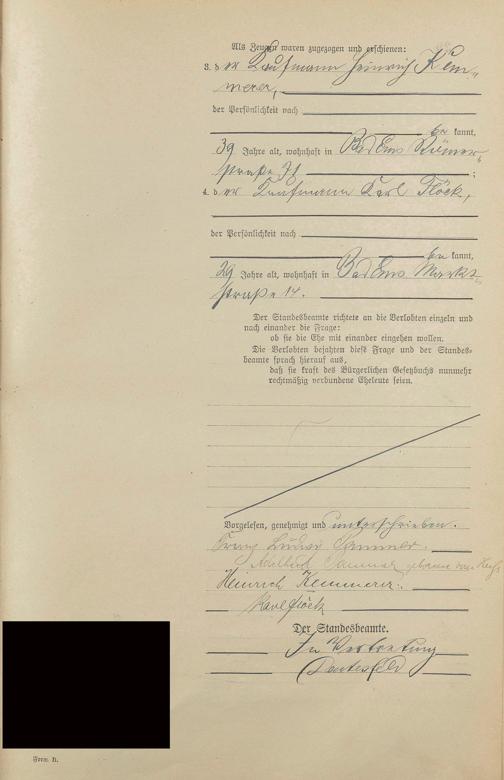 Als Zeugen waren zugezogen und erschienen:
3. der Kaufmann Heinrich Kem-
merer,
der Persönlichkeit nach
be kannt,
39 Jahre alt, wohnhaft in Bad Ems Römer-
straße 71 ;
4. der Kaufmann Karl Flöck,
der Persönlichkeit nach
be kannt,
29 Jahre alt, wohnhaft in Bad Ems Markt-
straße 14.
Der Standesbeamte richtete an die Verlobten einzeln und
nach einander die Frage:
ob sie die Ehe mit einander eingehen wollen.
Die Verlobten bejahten diese Frage und der Standes-
beamte sprach hierauf aus,
daß sie kraft des Bürgerlichen Gesetzbuchs nunmehr
rechtmäßig verbundene Eheleute seien.
Vorgelesen, genehmigt und unterschrieben.
Franz
geborene
Heinrich Kemmerer.
Karl Flöck
Der Standesbeamte.
In Vertretung
Form. B.